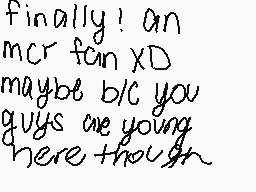 finally! an
mcr fan XD
maybe b/c you
guys are young
here though